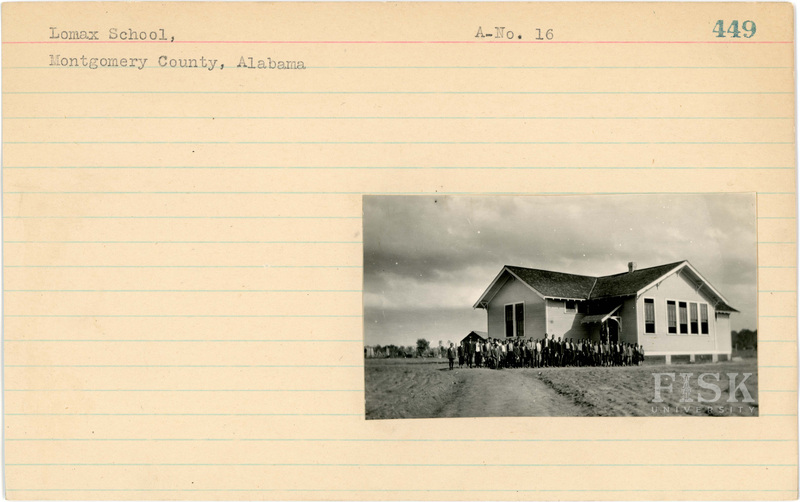 Lomax School, A-No. 16 449
Montgomery County, Alabama
FISK
UNIVERSITY